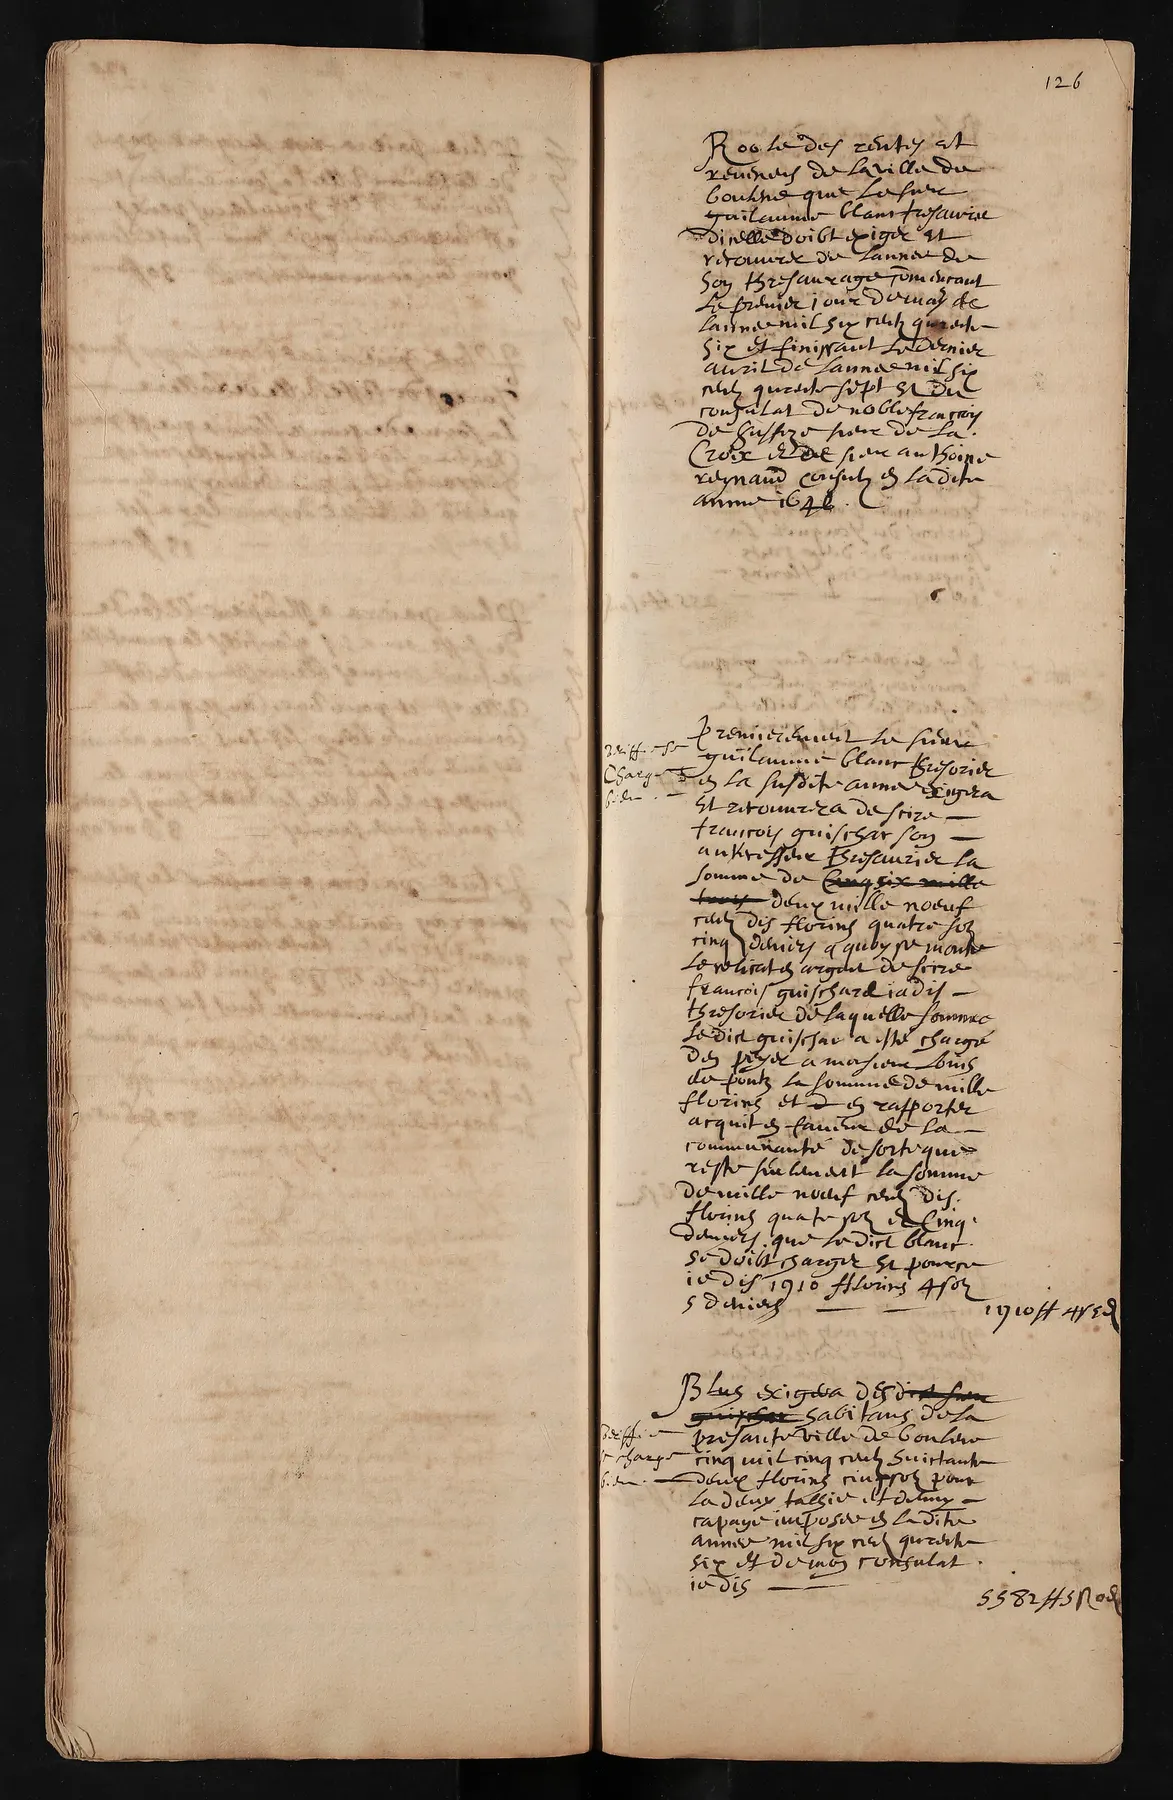 126
Roole des rentes et
revenus de la ville de
boulene que le sieur
guilaume blanc tresaurier
dicelle doibt exiger et
recouvrer de lannee de
son thresaurage commencant
le premier iour de may de
lannee mil six cens quarente
six et finissant le dernier
avril de lannee mil six
cens quarente sept et du
consulat de noble francois
de sieur de la
Croix et de sieur anthoine
reynaud consulz en ladite
annee 1646.
Premierement le sieur
guilaume blanc thresorier
en la susdite annee exigera
et recouvrera de sire
francois guischar son
antecesseur thresaurier la
somme de cinq six mille
trois deux mille noeuf
cens dis florins quatre solz
cinq deniers a quoy se monte
le relicat en argent de sire
francois guischard iadis
thresorier de laquelle somme
le dict guischar a esté chargé
den peyer a monsieur louis
de pontz la somme de mille
florins et d en rapporter
acquit en faveur de la
communauté de sorte que
reste seulement la somme
de mille noeuf cens dis
florins quatre solz et cinq
deniers que le dict blanc
se doibt charger et pource
ie dis 1910 fflorins 4 solz
5 deniers
1910 ff 4 s 5 d
verifié se
Charge
bien
Plus exigera des dict sieur
guischar habitans de la
presante ville de boulene
cinq mil cinq cens huictante
deux florins cinq solz pour
la deux tallie et demy
capage imposee en ladite
annee mil six cens quarente
six et de mon consulat
ie dis
5582 ff 5 s 0 d
verifié
se charge
bien